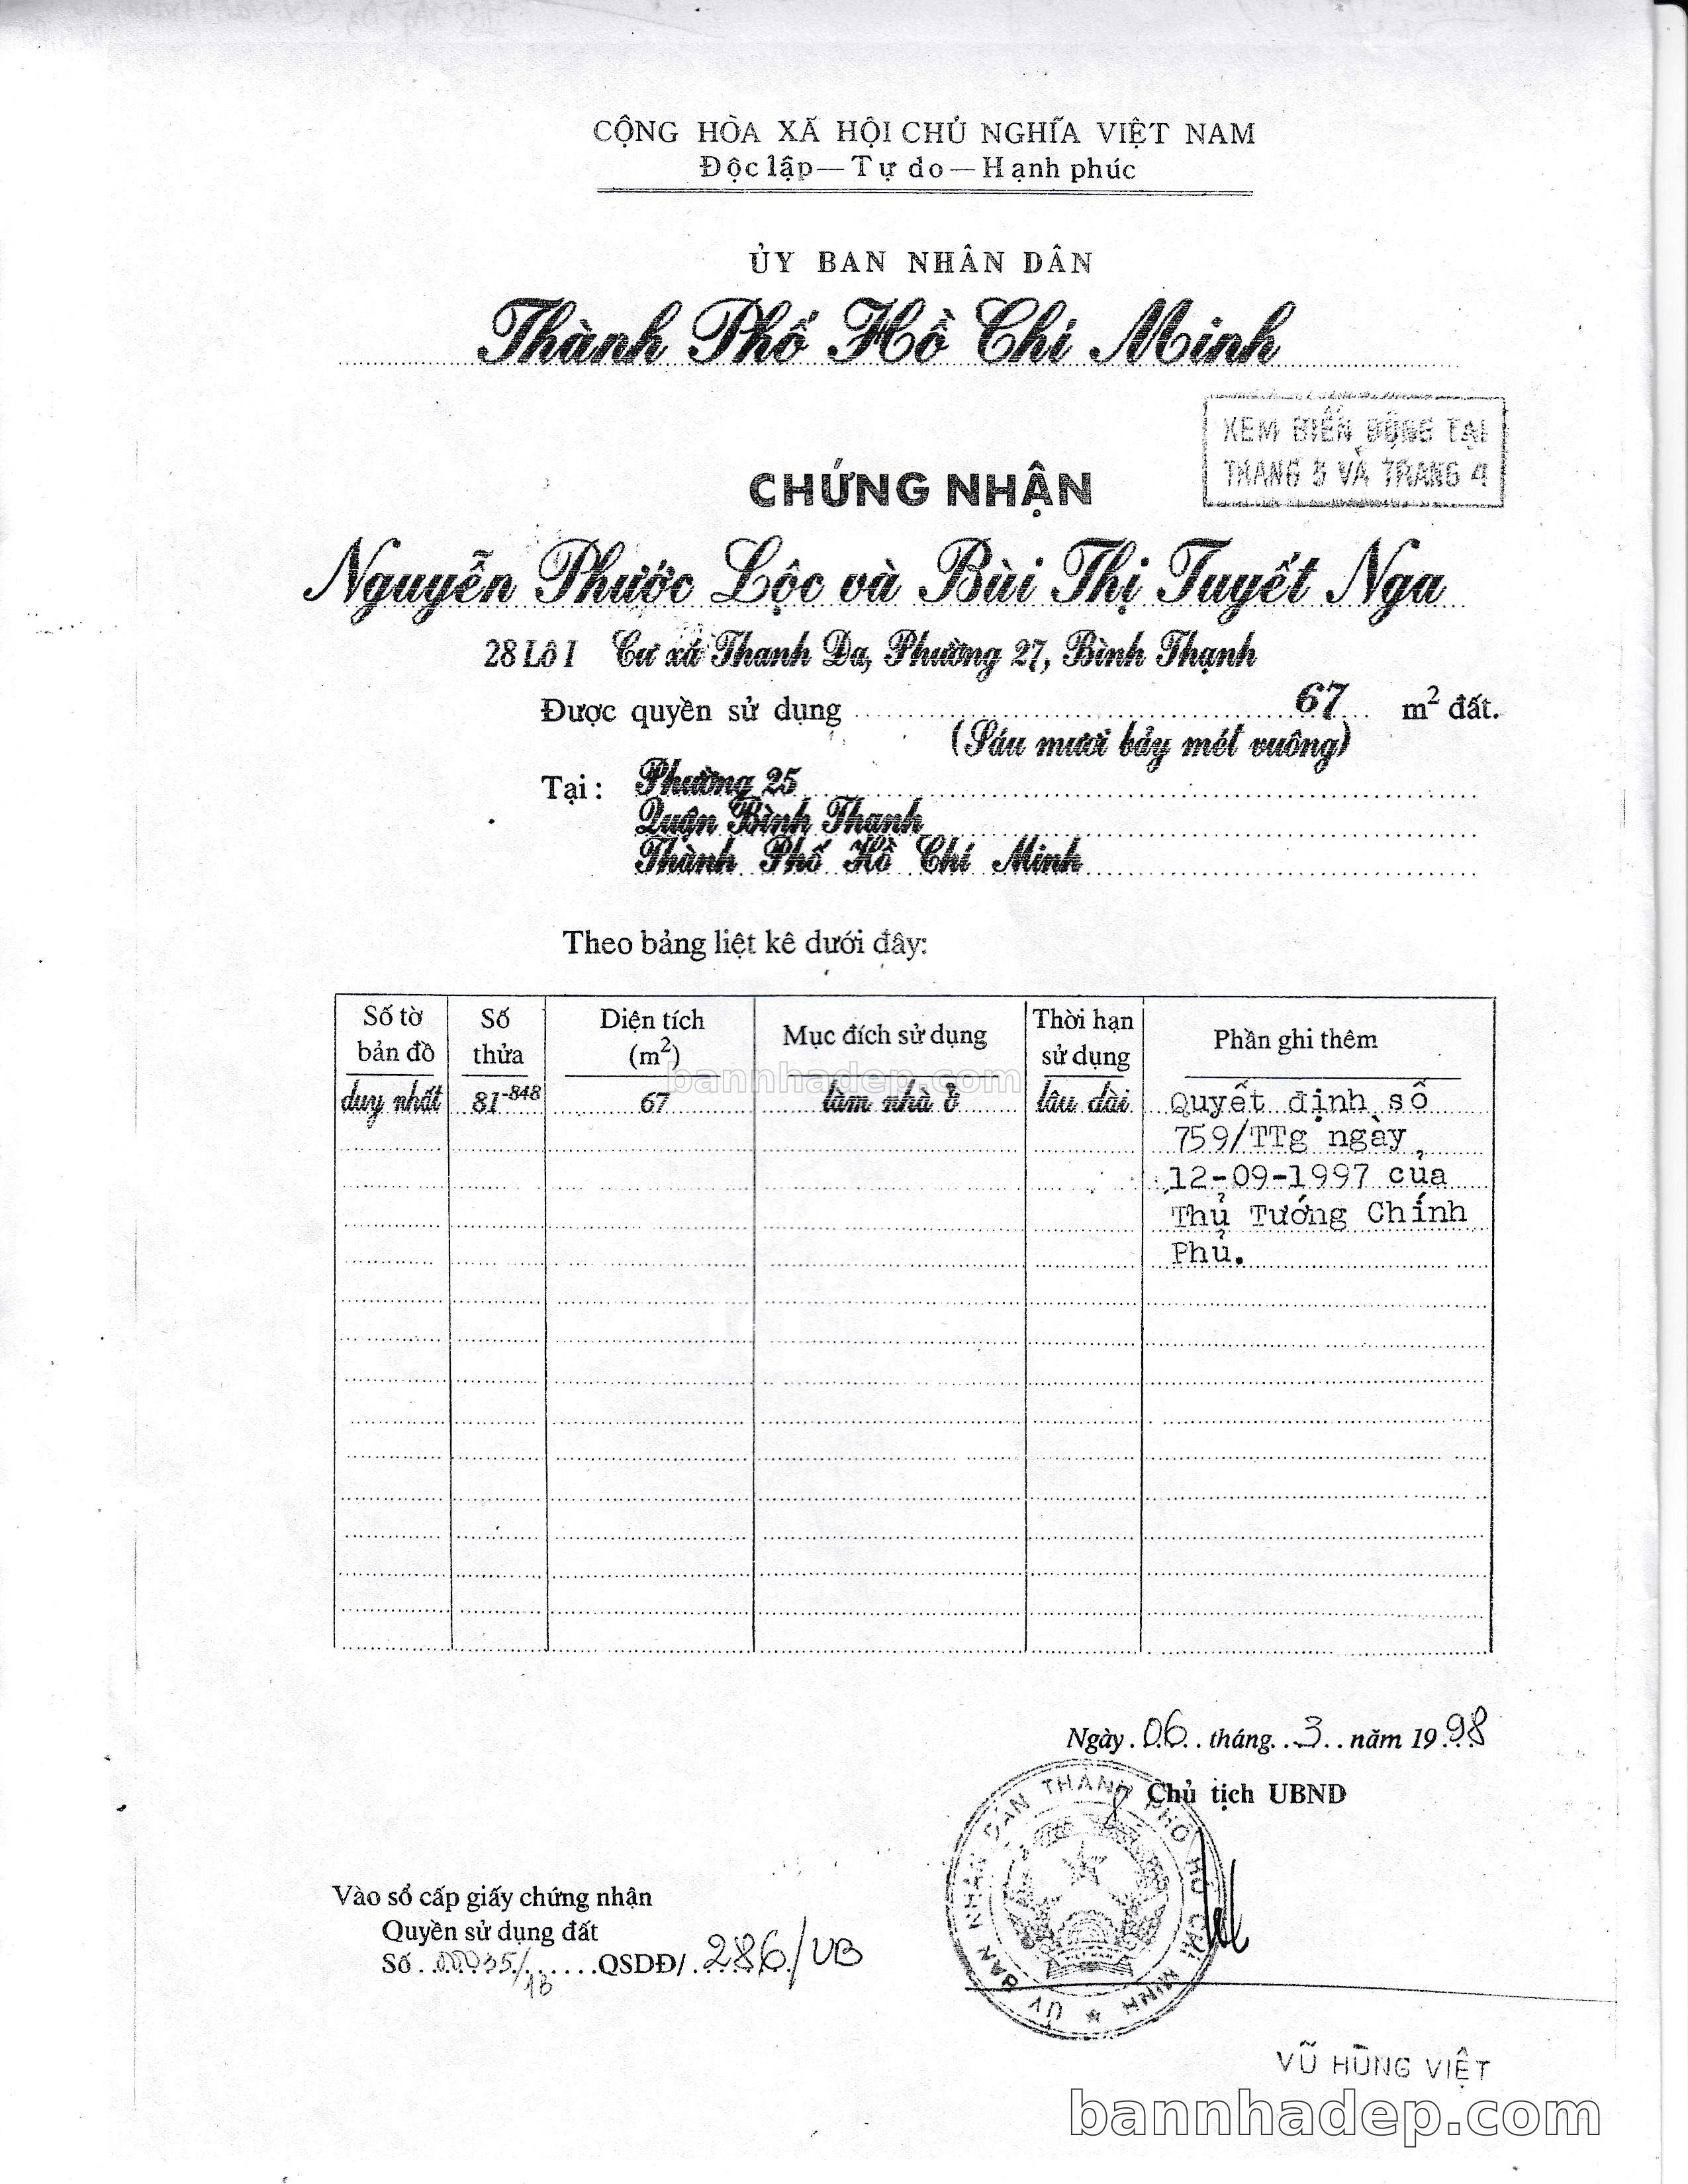 CỘNG HÒA XÃ HỘI CHỦ NGHĨA VIỆT NAM
Độc lập — Tự do — Hạnh phúc
ỦY BAN NHÂN DÂN
Thành Phố Hồ Chí Minh
XEM BIẾN ĐỘNG TẠI
TRANG 3 VÀ TRANG 4
CHỨNG NHẬN
Nguyễn Phước Lộc và Bùi Thị Tuyết Nga
28 Lô I Cư xá Thanh Đa, Phường 27, Bình Thạnh
Được quyền sử dụng 67 m² đất.
(Sáu mươi bảy mét vuông)
Tại : Phường 25
Quận Bình Thạnh
Thành Phố Hồ Chí Minh
Theo bảng liệt kê dưới đây:
Số tờ bản đồ Số thửa Diện tích (m²) Mục đích sử dụng Thời hạn sử dụng Phần ghi thêm
bannhadep.com
duy nhất 81-848 67 làm nhà ở lâu dài Quyết định số
759/TTg ngày
12-09-1997 của
Thủ Tướng Chính
Phủ.
Ngày 06 tháng 3 năm 1998
Chủ tịch UBND
ỦY BAN NHÂN DÂN THÀNH PHỐ HỒ CHÍ MINH
Vào sổ cấp giấy chứng nhận
Quyền sử dụng đất
Số QSDĐ/ 286/UB
VŨ HÙNG VIỆT
bannhadep.com